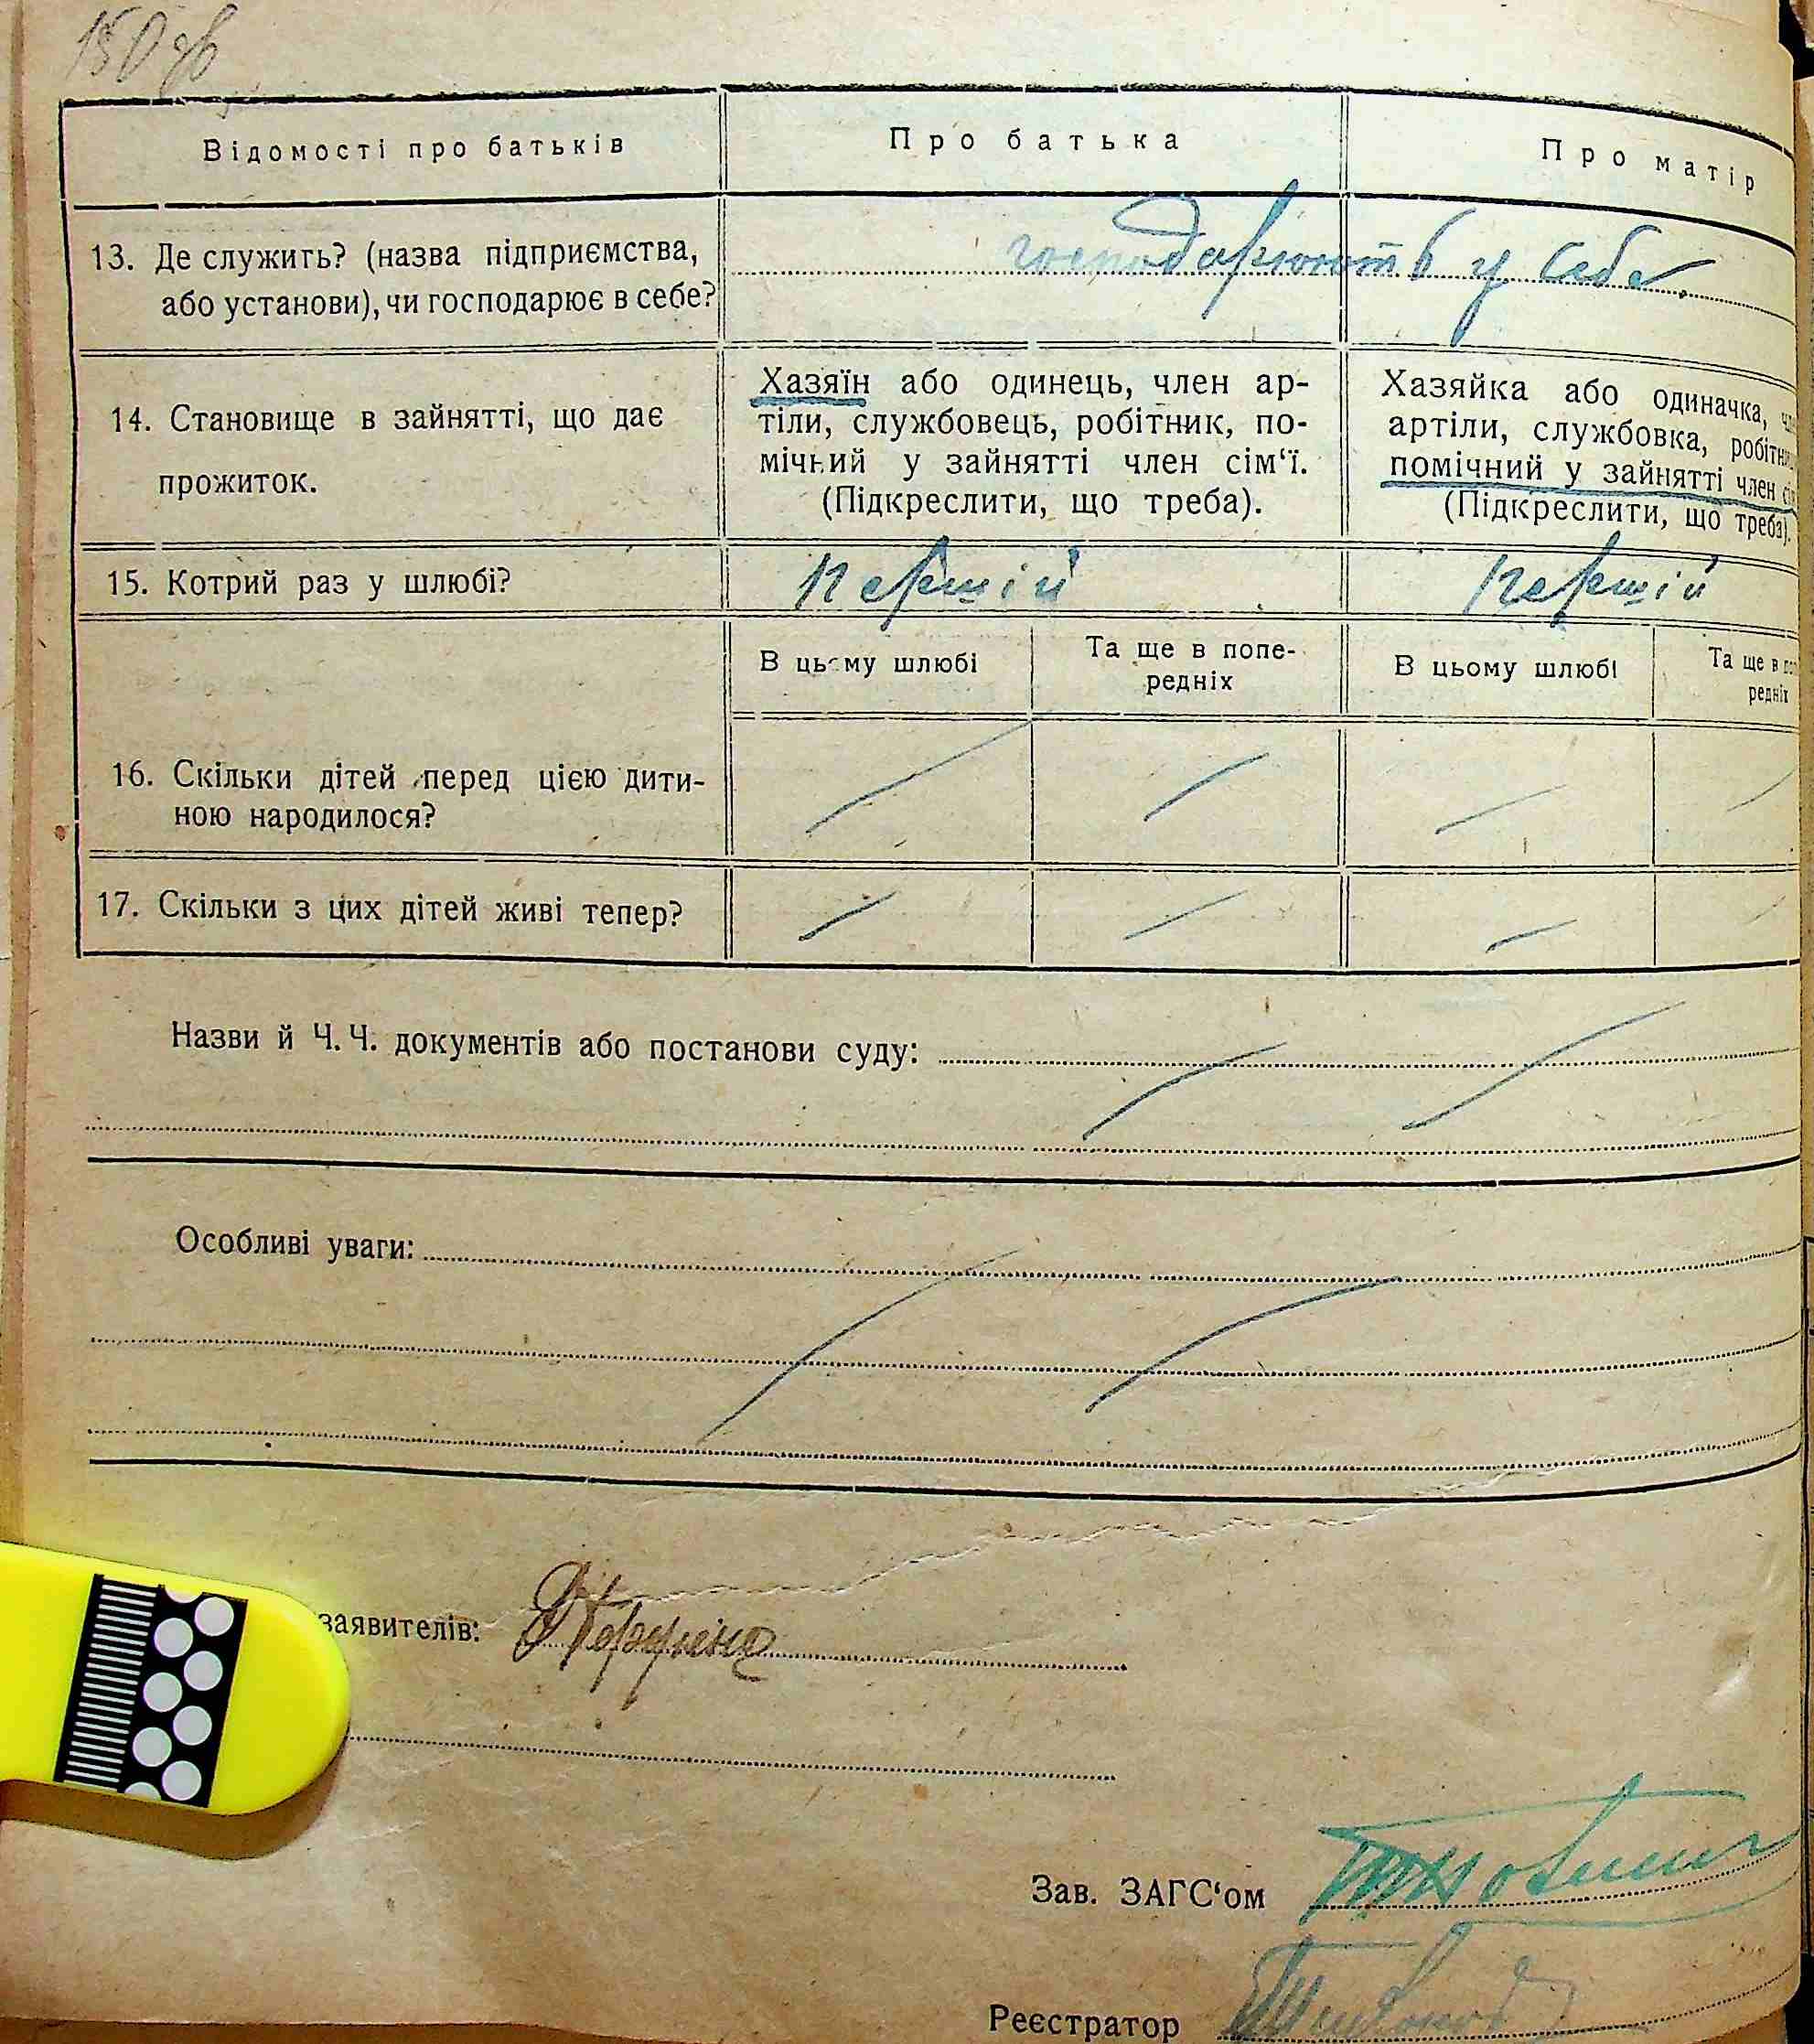 150 зв
Відомості про батьків
Про батька
Про матір
13. Де служить? (назва підприємства,
або установи), чи господарює в себе?
господарюють у себе.
14. Становище в зайнятті, що дає
прожиток.
Хазяїн або одинець, член ар-
тіли, службовець, робітник, по-
мічний у зайнятті член сім'ї.
(Підкреслити, що треба).
Хазяйка або одиначка,
артіли, службовка,
помічний у зайнятті член
(Підкреслити, що треба).
15. Котрий раз у шлюбі?
перший
перший
В цьому шлюбі
Та ще в попе-
редніх
В цьому шлюбі
Та ще в
редніх
16. Скільки дітей перед цією дити-
ною народилося?
17. Скільки з цих дітей живі тепер?
Назви й Ч. Ч. документів або постанови суду:
Особливі уваги:
заявителів:
Зав. ЗАГС'ом
Реєстратор